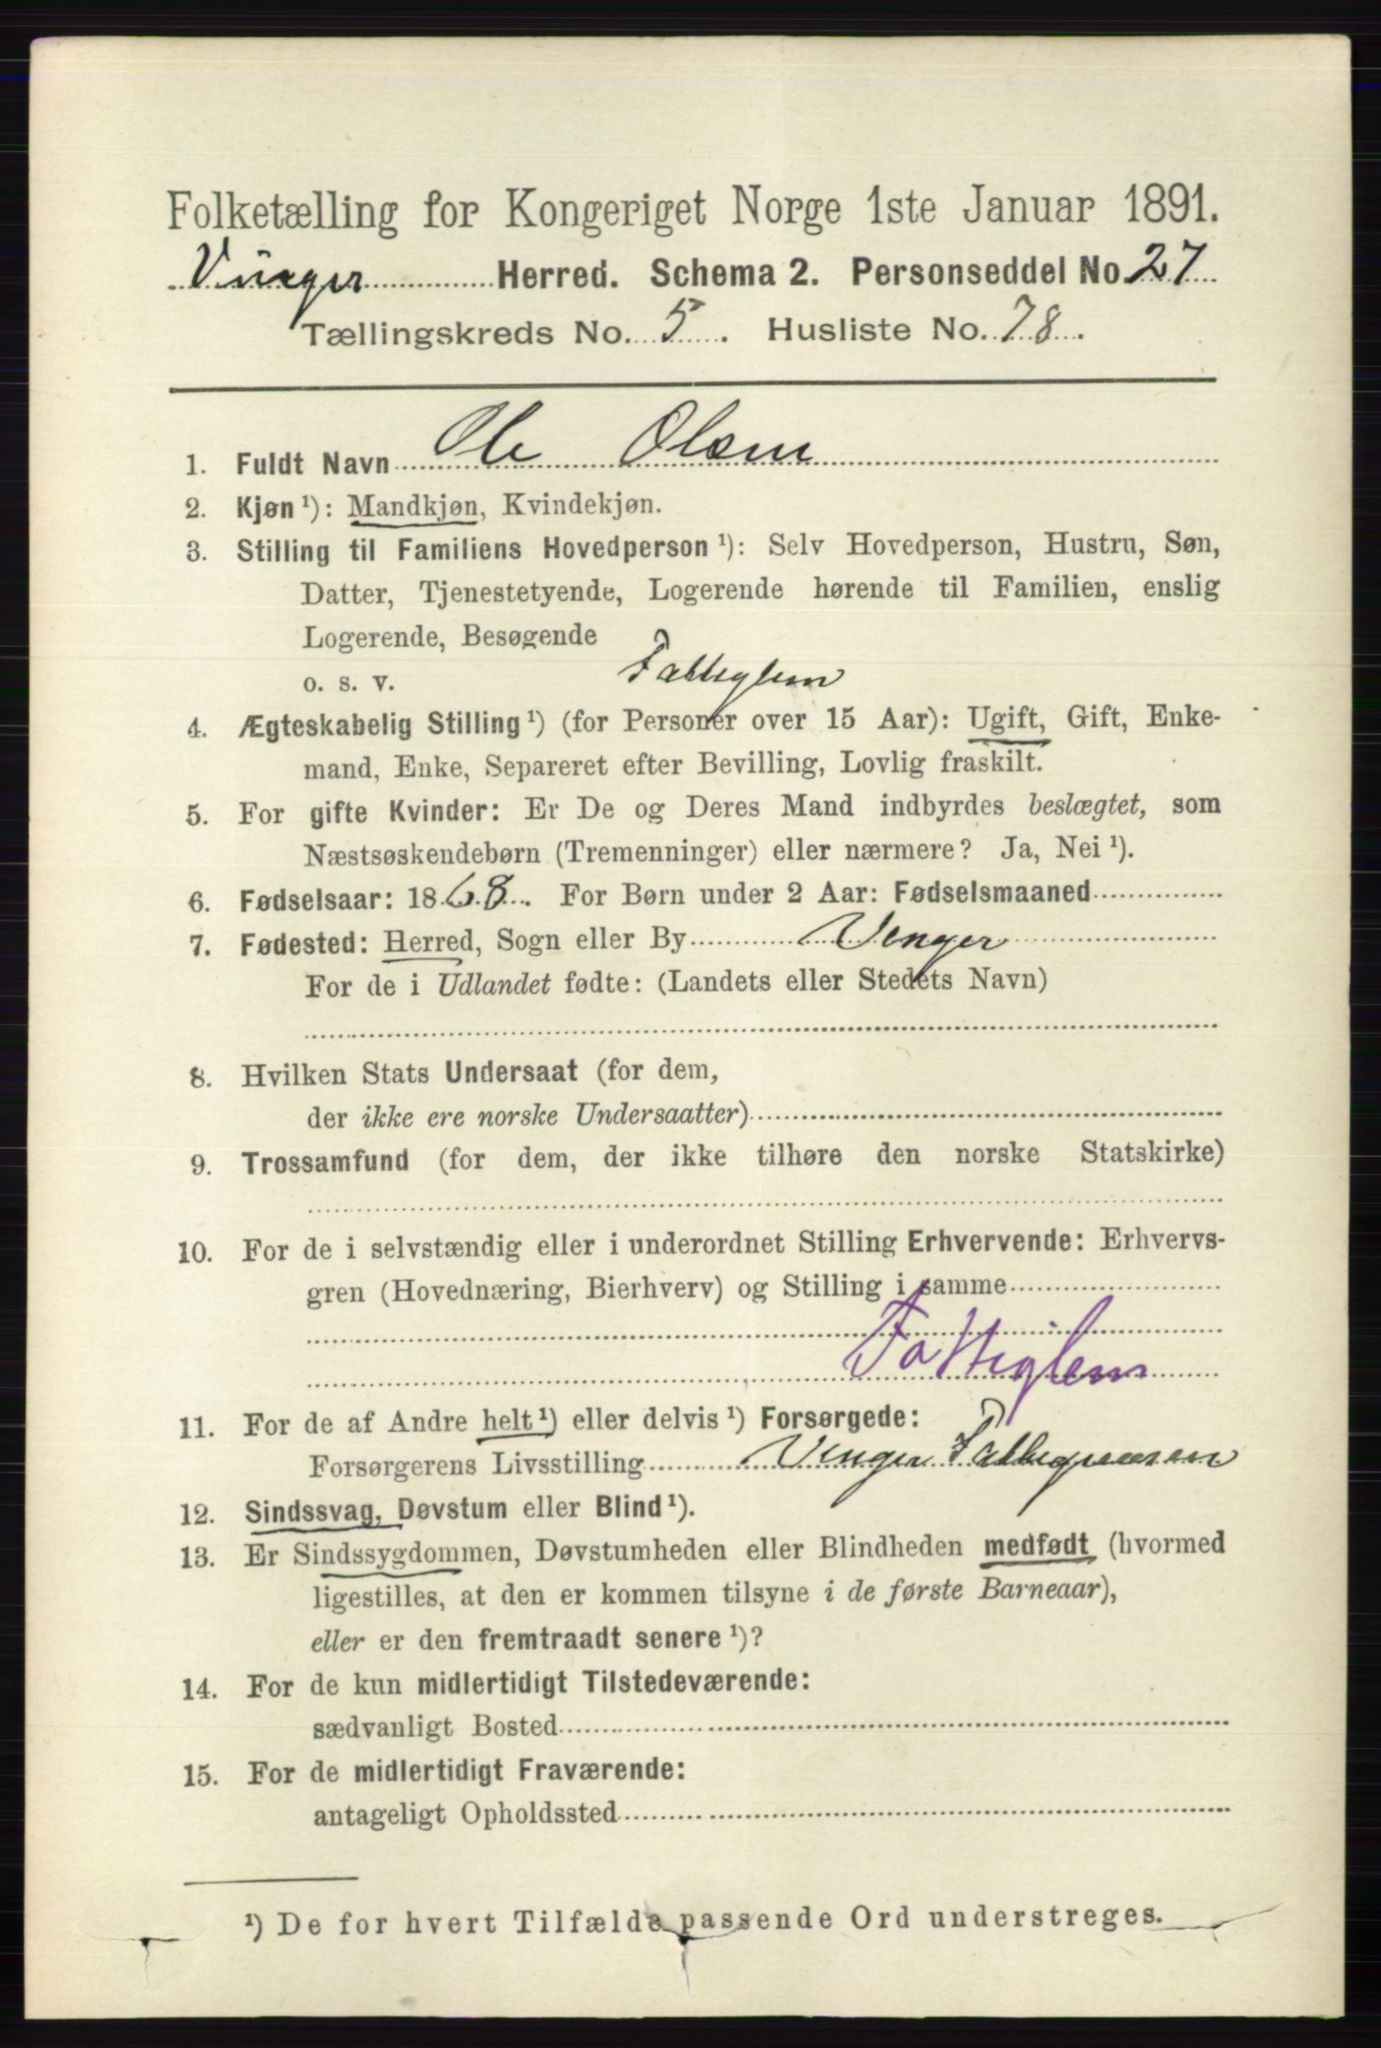 Folketælling for Kongeriget Norge 1ste Januar 1891.
Vinger Herred. Schema 2. Personseddel No. 27
Tællingskreds No. 5. Husliste No. 78.
1. Fuldt Navn Ole Olsen
2. Kjøn ¹): Mandkjøn, Kvindekjøn.
3. Stilling til Familiens Hovedperson ¹): Selv Hovedperson, Hustru, Søn,
Datter, Tjenestetyende, Logerende hørende til Familien, enslig
Logerende, Besøgende
o. s. v. Fattiglem
4. Ægteskabelig Stilling ¹) (for Personer over 15 Aar): Ugift, Gift, Enke-
mand, Enke, Separeret efter Bevilling, Lovlig fraskilt.
5. For gifte Kvinder: Er De og Deres Mand indbyrdes beslægtet, som
Næstsøskendebørn (Tremenninger) eller nærmere? Ja, Nei ¹).
6. Fødselsaar: 1868. For Børn under 2 Aar: Fødselsmaaned
7. Fødested: Herred, Sogn eller By Vinger
For de i Udlandet fødte: (Landets eller Stedets Navn)
8. Hvilken Stats Undersaat (for dem,
der ikke ere norske Undersaatter)
9. Trossamfund (for dem, der ikke tilhøre den norske Statskirke)
10. For de i selvstændig eller i underordnet Stilling Erhvervende: Erhvervs-
gren (Hovednæring, Bierhverv) og Stilling i samme
Fattiglem
11. For de af Andre helt ¹) eller delvis ¹) Forsørgede:
Forsørgerens Livsstilling Vinger Fattigvæsen
12. Sindssvag, Døvstum eller Blind ¹).
13. Er Sindssygdommen, Døvstumheden eller Blindheden medfødt (hvormed
ligestilles, at den er kommen tilsyne i de første Barneaar),
eller er den fremtraadt senere ¹)?
14. For de kun midlertidigt Tilstedeværende:
sædvanligt Bosted
15. For de midlertidigt Fraværende:
antageligt Opholdssted
¹) De for hvert Tilfælde passende Ord understreges.